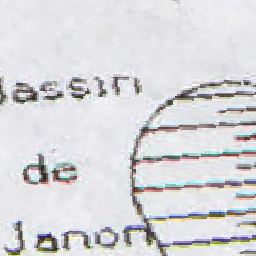 Bassin
de
Janon